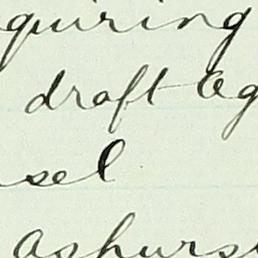 quiring
draft Ag
sel
Ashurs